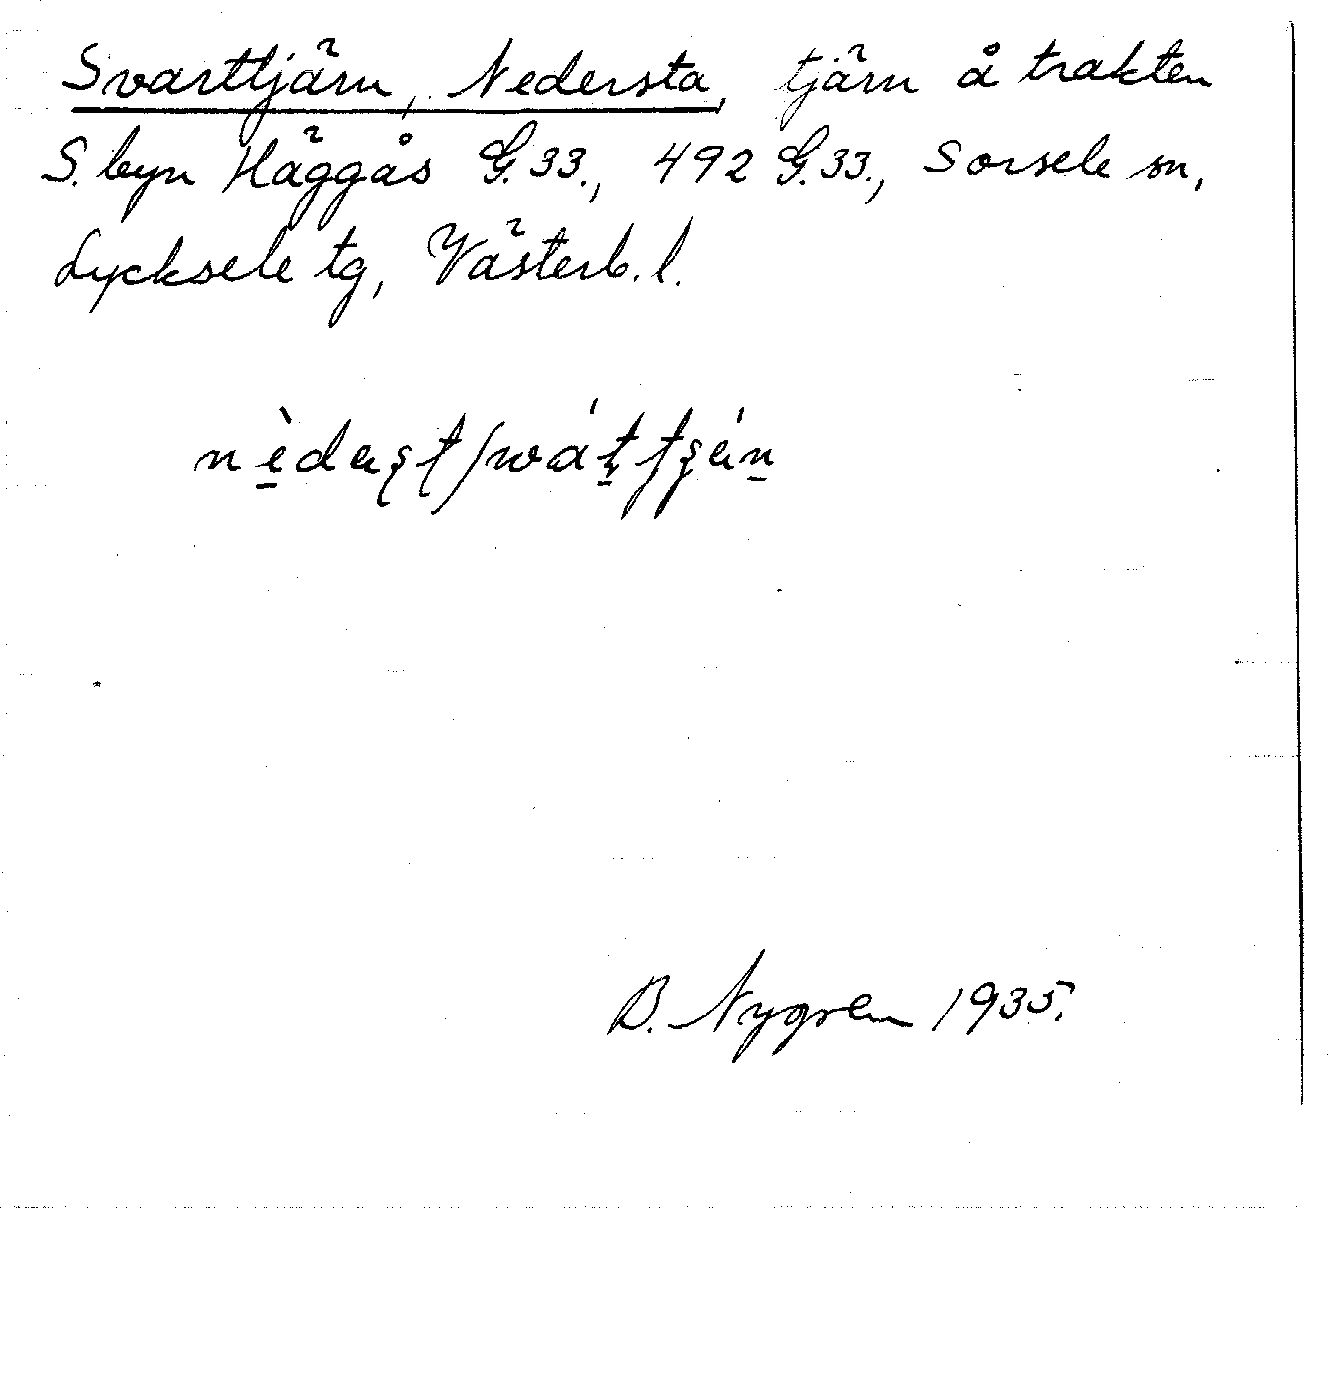 Svarttjärn, Nedersta, tjärn å trakten
S. byn Häggås G.33., 492 G.33., Sorsele sn,
Lycksele tg, Västerb. l.
B. Nygren 1935.